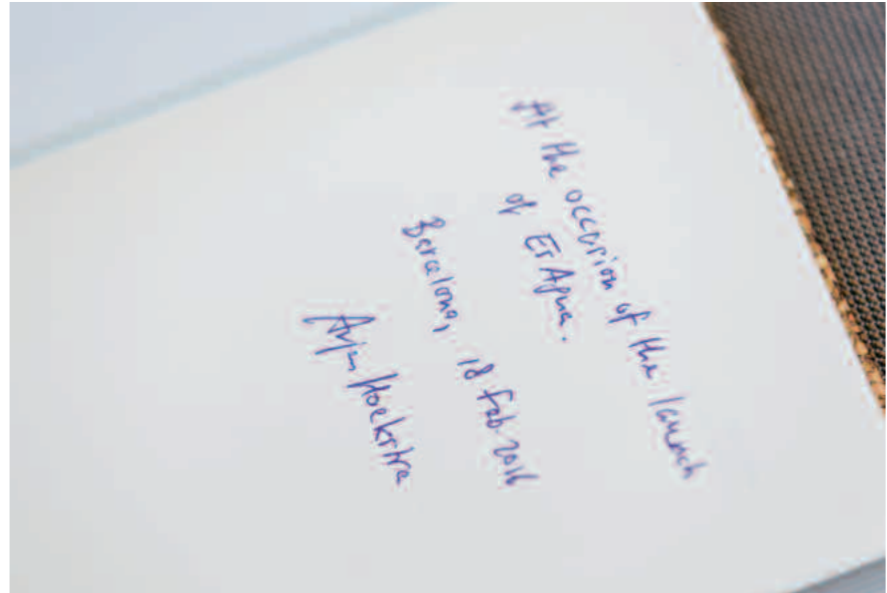 At the occasion of the launch
of EsAgua.
Barcelona, 18 feb 2016
Arjen Hoekstra